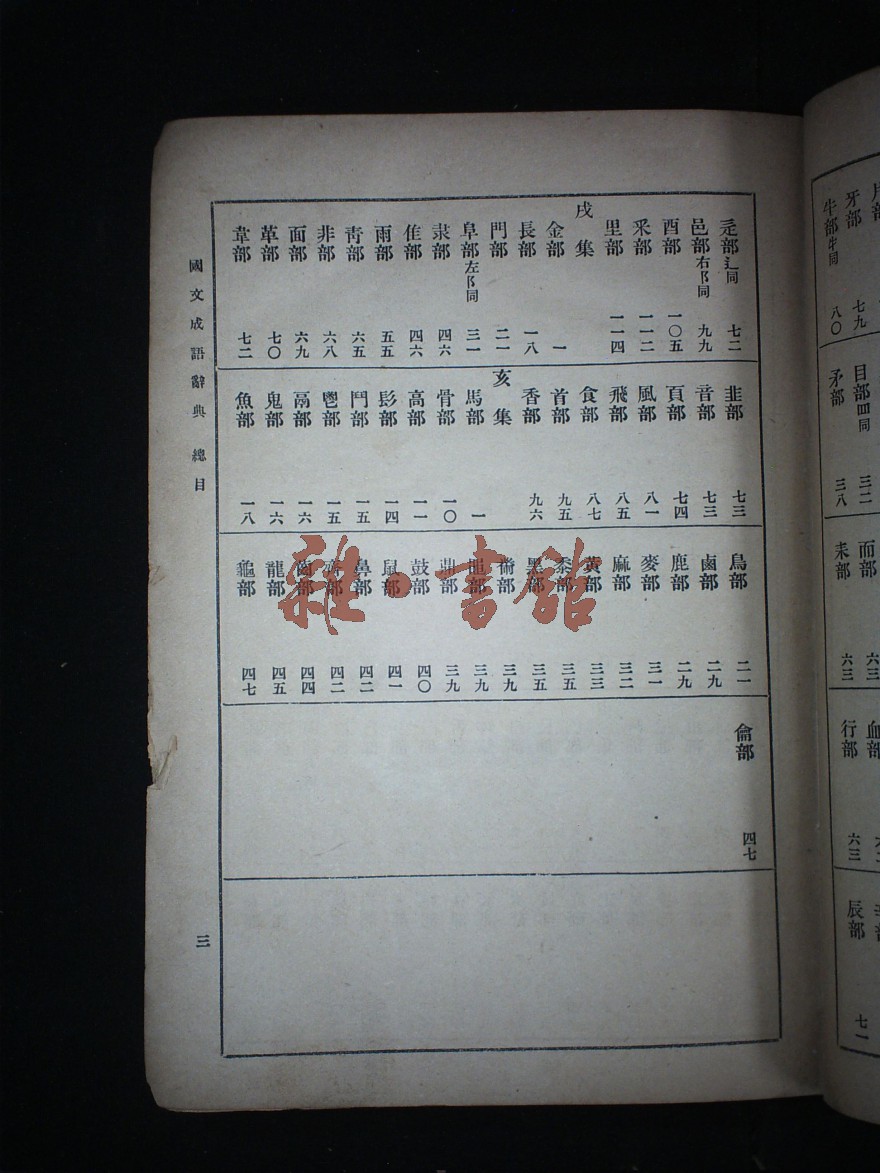 辵部辶同 七二
邑部右阝同 九九
酉部 一〇五
釆部 一一二
里部 一一四
戌集
金部 一
長部 一八
門部 二一
阜部左阝同 三一
隶部 四六
隹部 四六
雨部 五五
靑部 六五
非部 六八
面部 六九
革部 七〇
韋部 七二
韭部 七三
音部 七三
頁部 七四
風部 八一
飛部 八五
食部 八七
首部 九五
香部 九六
亥集
馬部 一
骨部 一〇
高部 一一
髟部 一四
鬥部 一五
鬯部 一五
鬲部 一六
鬼部 一六
魚部 一八
鳥部 二一
鹵部 二九
鹿部 二九
麥部 三一
麻部 三二
黃部 三三
黍部 三五
黑部 三五
黹部 三九
黽部 三九
鼎部 三九
鼓部 四〇
鼠部 四一
鼻部 四二
齊部 四二
齒部 四四
龍部 四五
龜部 四七
龠部 四七
國文成語辭典 總目
三
雜·書館
牙部 七九
牛部牜同 八〇
目部罒同 三二
矛部 三八
而部 六三
耒部 六三
血部
行部 六三
辰部 七一